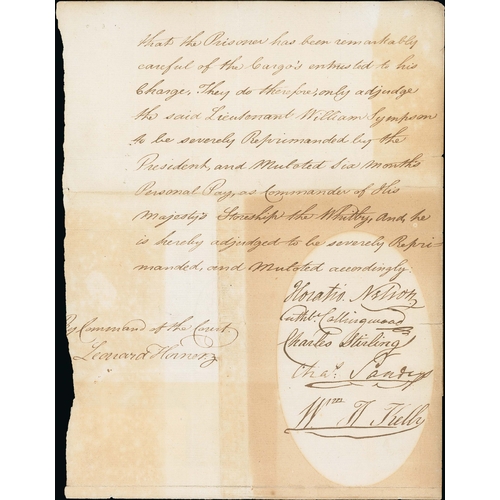 that the Prisoner has been remarkably
careful of the Cargo's entrusted to his
Charge, They do therefore, only adjudge
the said Lieutenant William Sympson
to be severely Reprimanded by the
President, and Mulcted Six months
Personal Pay, as Commander of His
Majesty's Storeship the Whitby, And, he
is hereby adjudged to be severely Repri-
manded, and Mulcted accordingly.
Horatio Nelson
Cuthbt Collingwood
Charles Stirling
By Command of the Court
Leonard
Chas. Sandys
Wm H Kelly